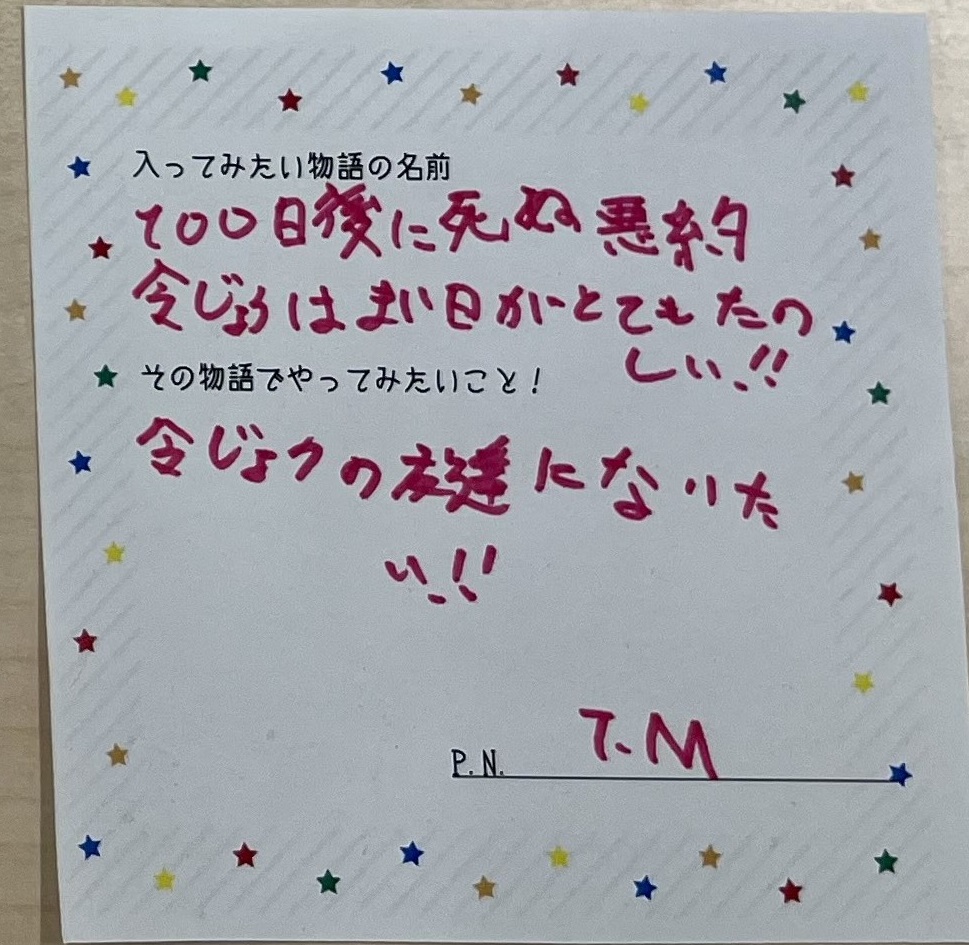 入ってみたい物語の名前
100日後に死ぬ悪約
令じょうはまい日がとてもたの
しい!!
その物語でやってみたいこと!
令じょうの友達になりた
い!!
P.N. T.M